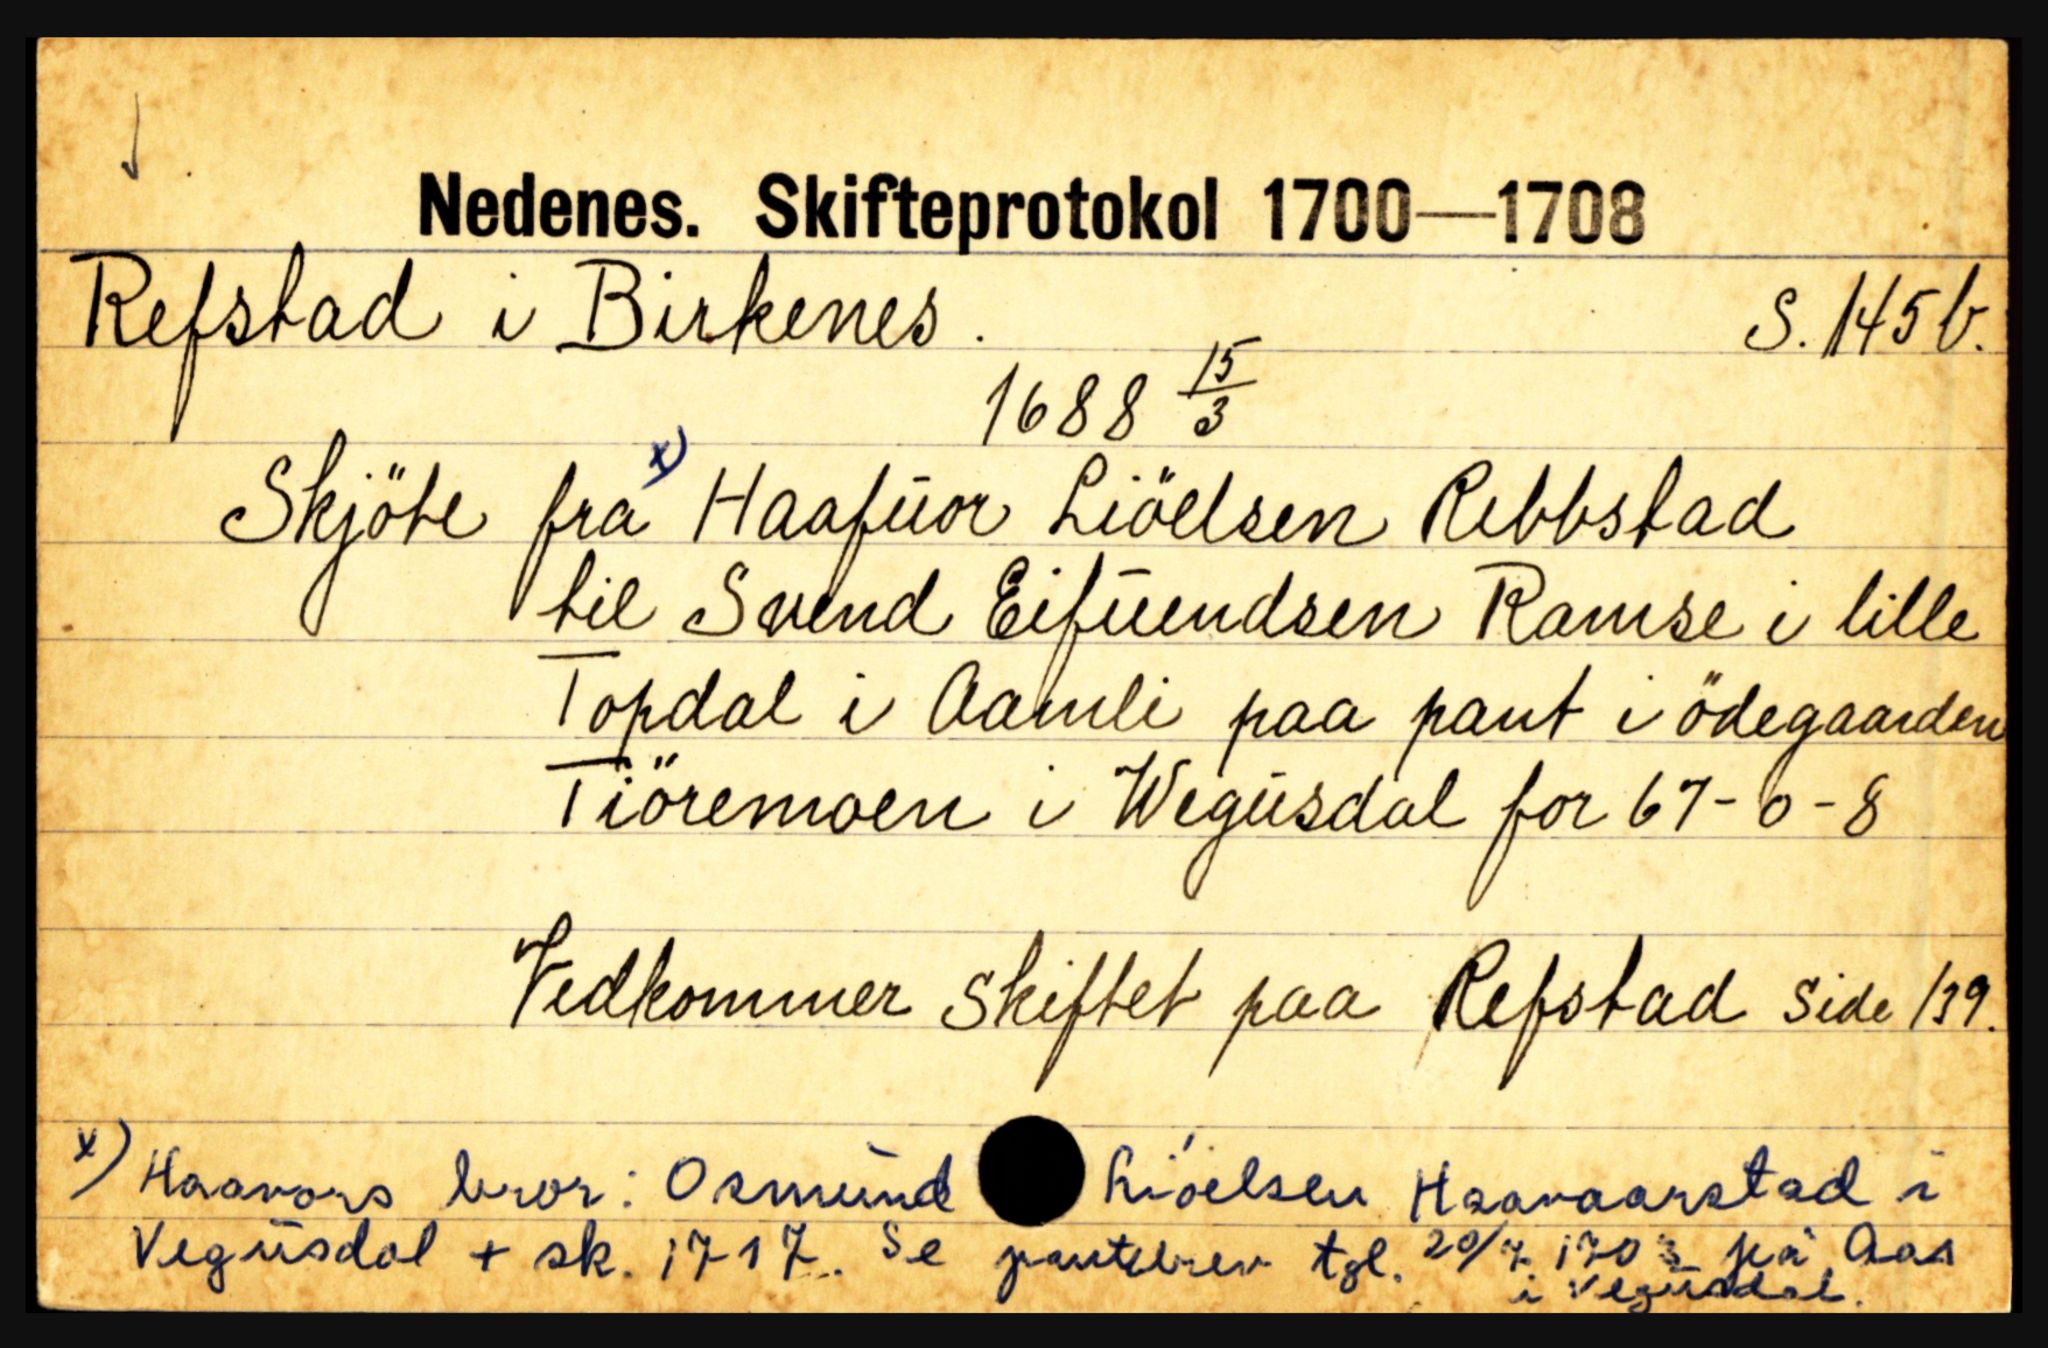 Nedenes. Skifteprotokol 1700—1708
Refstad i Birkenes. S. 145b.
1688 15/3
Skjöte fra x) Haafŭor Liöelsen Rebbstad
til Svend Eifŭendsen Ramse i lille
Topdal i Aamli paa pant i ödegaarden
Tiöremoen i Wegŭsdal for 67-0-8
Vedkommer skiftet paa Refstad Side 139.
x) Haavors bror: Osmŭnd Liöelsen Haavaarstad i
Vegŭsdal + sk. 1717. Se pantebrev tgl. 20/7 1703 på Aas
i Vegŭsdal.